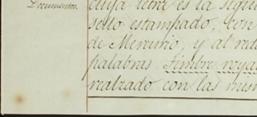 Documentos.
cuya letra es la sigui
sello estampado, con
de Mercurio, y al rede
palabras Timbre royal
realzado con las mism